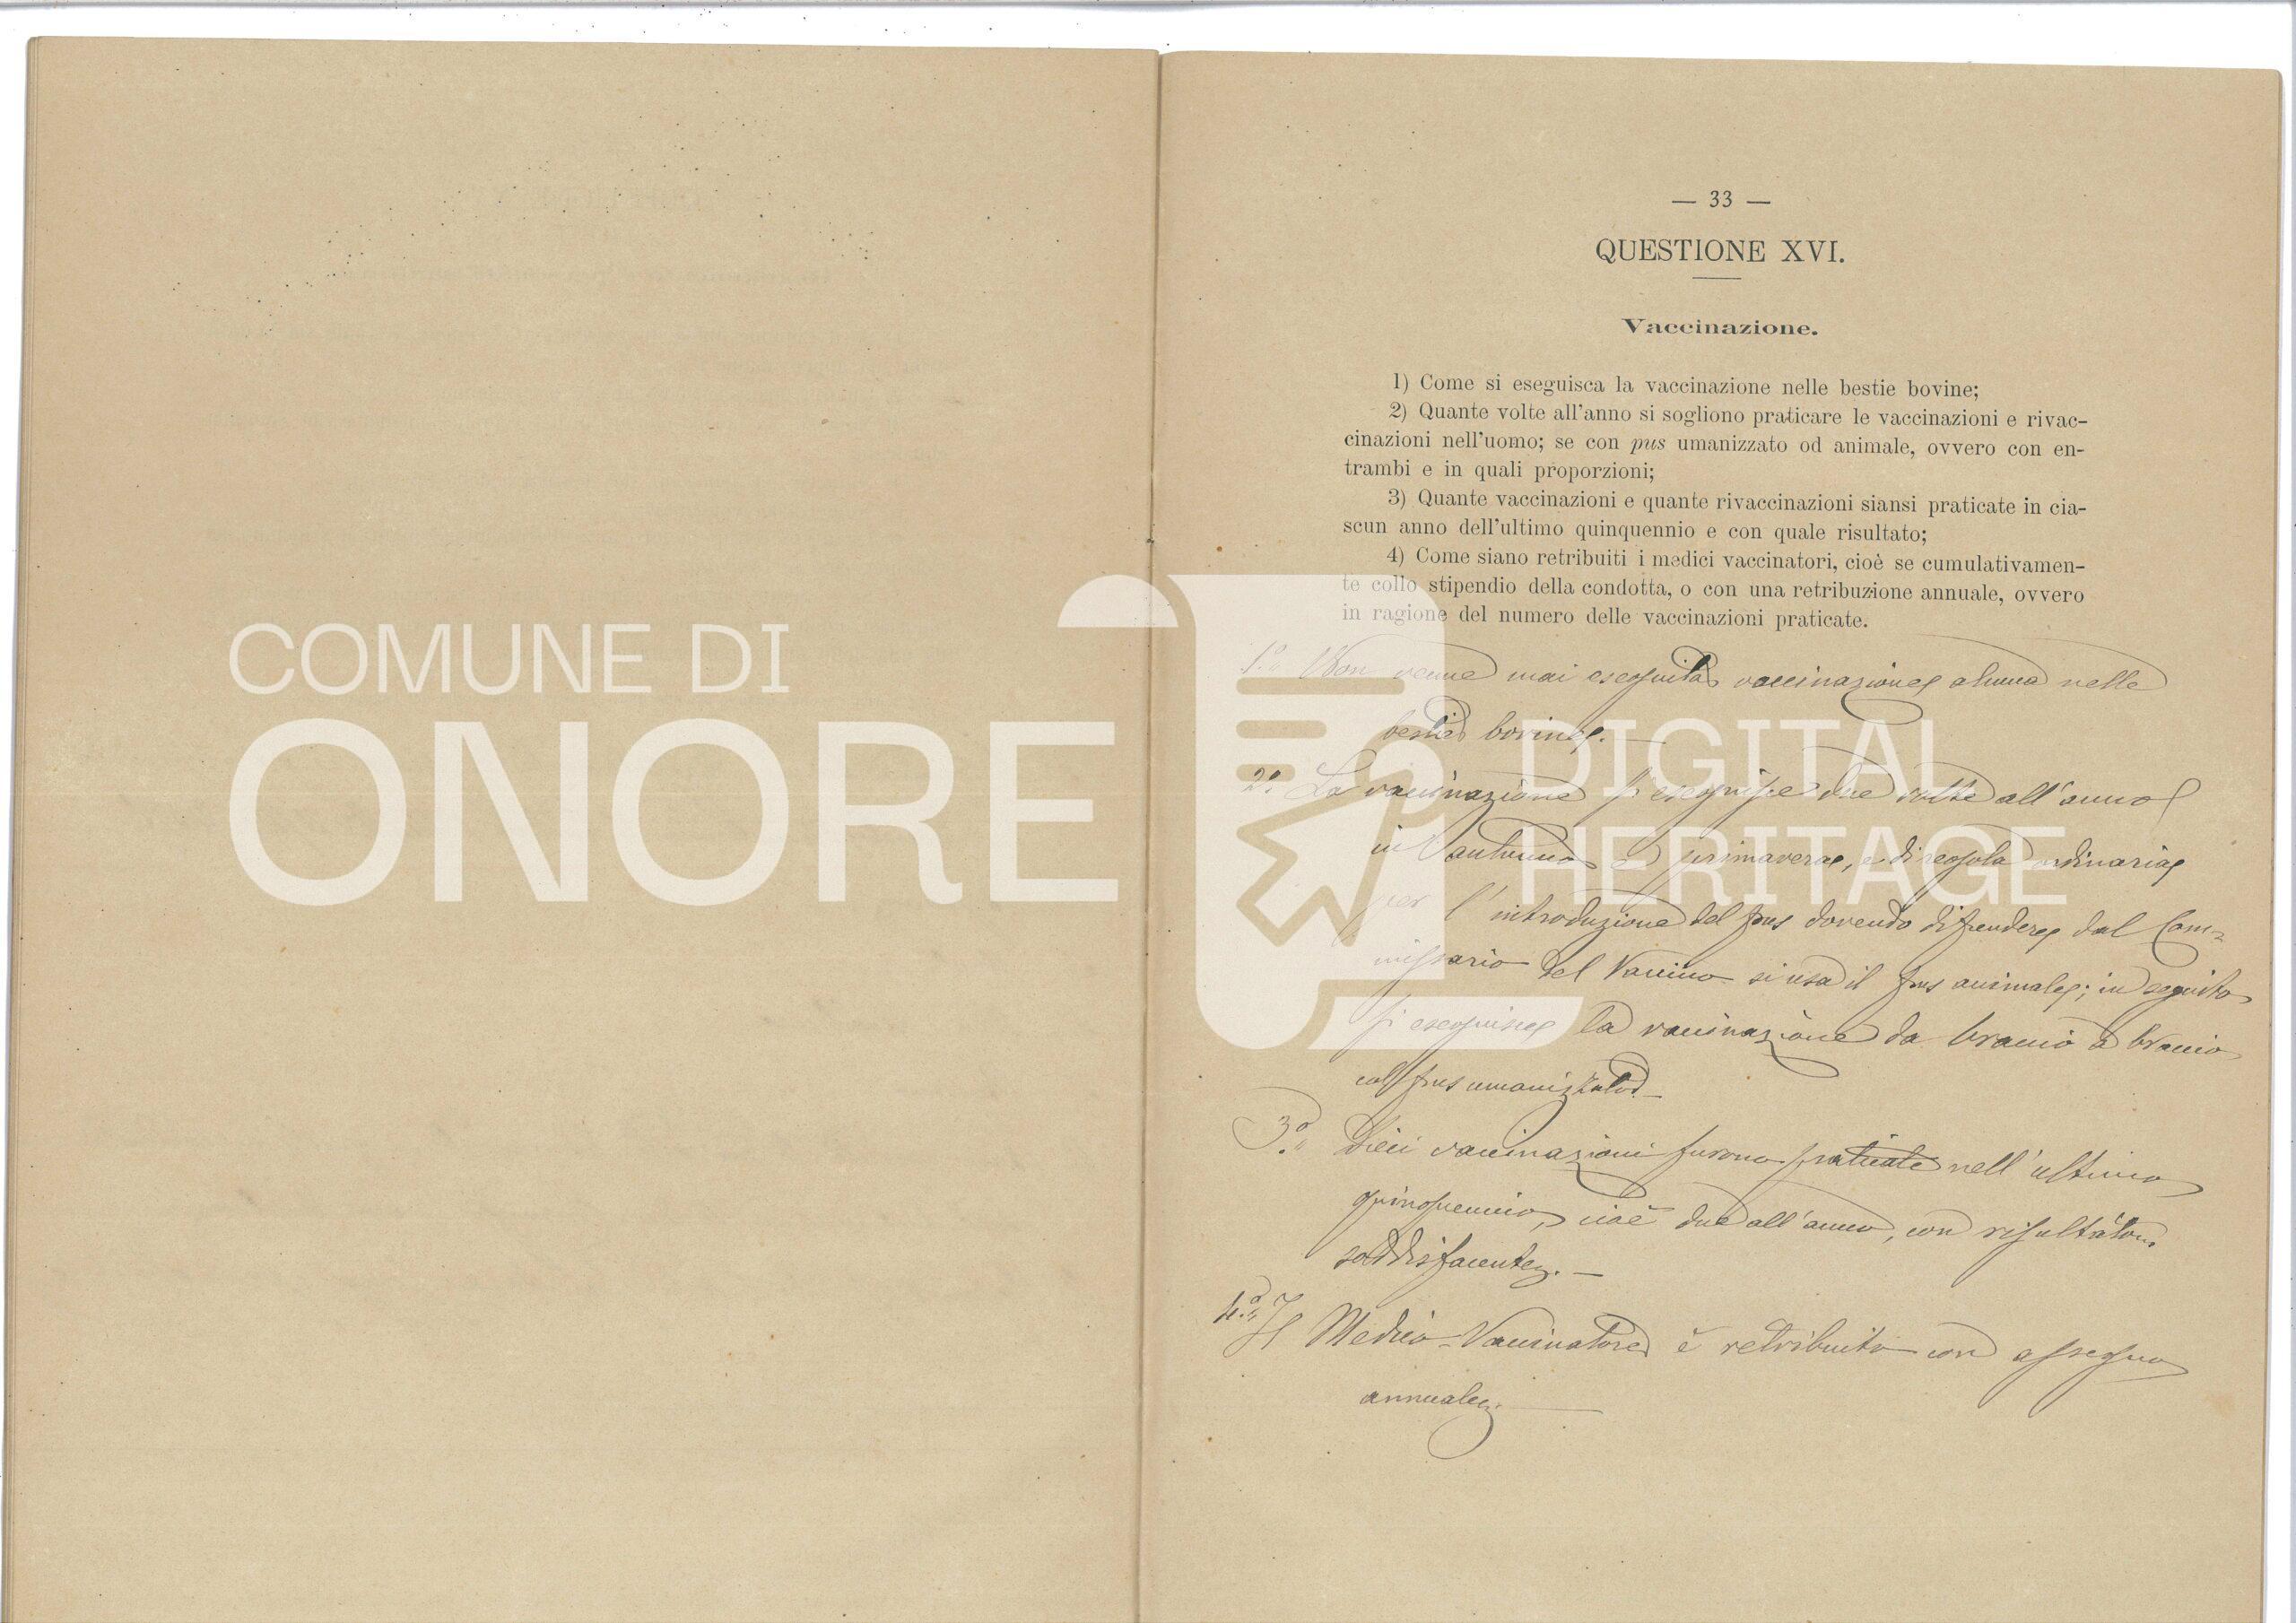 — 33 —
QUESTIONE XVI.
Vaccinazione.
1) Come si eseguisca la vaccinazione nelle bestie bovine;
2) Quante volte all'anno si sogliono praticare le vaccinazioni e rivac-
cinazioni nell'uomo; se con pus umanizzato od animale, ovvero con en-
trambi e in quali proporzioni;
3) Quante vaccinazioni e quante rivaccinazioni siansi praticate in cia-
scun anno dell'ultimo quinquennio e con quale risultato;
4) Come siano retribuiti i medici vaccinatori, cioè se cumulativamen-
te collo stipendio della condotta, o con una retribuzione annuale, ovvero
in ragione del numero delle vaccinazioni praticate.
1.° Non venne mai eseguita vaccinazione alcuna nelle
bestie bovine. —
2.° La vaccinazione si eseguisce due volte all'anno
in autunno e primavera, e di regola ordinaria
per l'introduzione del pus dovendo dipendere dal Com=
missario del Vaccino si usa il pus animale; in seguito
si eseguisce la vaccinazione da braccio a braccio
col pus umanizzato. —
3.° Dieci vaccinazioni furono praticate nell'ultimo
quinquennio, cioè due all'anno, con risultato
soddisfacente. —
4.° Il Medico-Vaccinatore è retribuito con assegno
annuale. —
COMUNE DI
ONORE
DIGITAL
HERITAGE